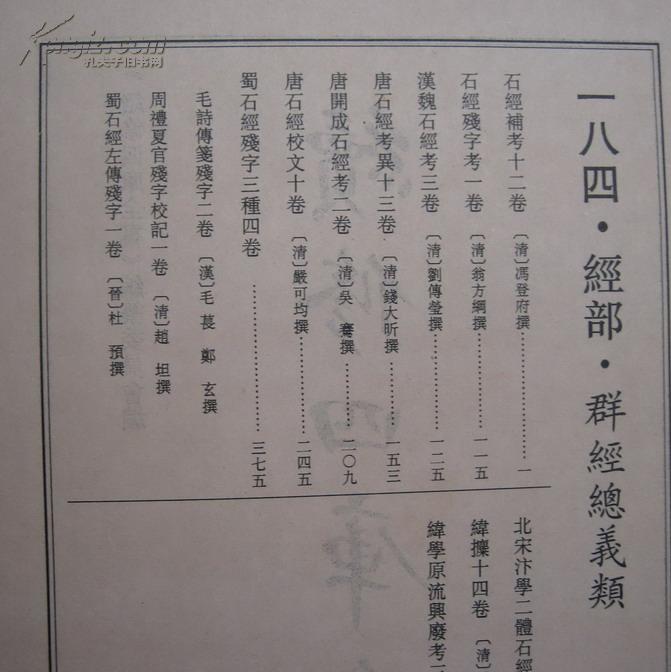 一八四·經部·群經總義類
石經補考十二卷 〔清〕馮登府撰……一
石經殘字考一卷 〔清〕翁方綱撰……一一五
漢魏石經考三卷 〔清〕劉傳瑩撰……一二五
唐石經考異十三卷 〔清〕錢大昕撰……一五三
唐開成石經考二卷 〔清〕吳 騫撰……二〇九
唐石經校文十卷 〔清〕嚴可均撰……二四五
蜀石經殘字三種四卷……三七五
毛詩傳箋殘字二卷 〔漢〕毛 萇 鄭 玄撰
周禮夏官殘字校記一卷 〔清〕趙 坦撰
蜀石經左傳殘字一卷 〔晉〕杜 預撰
北宋汴學二體石經
緯攟十四卷 〔清〕
緯學原流興廢考三
Kongfz.com
孔夫子旧书网